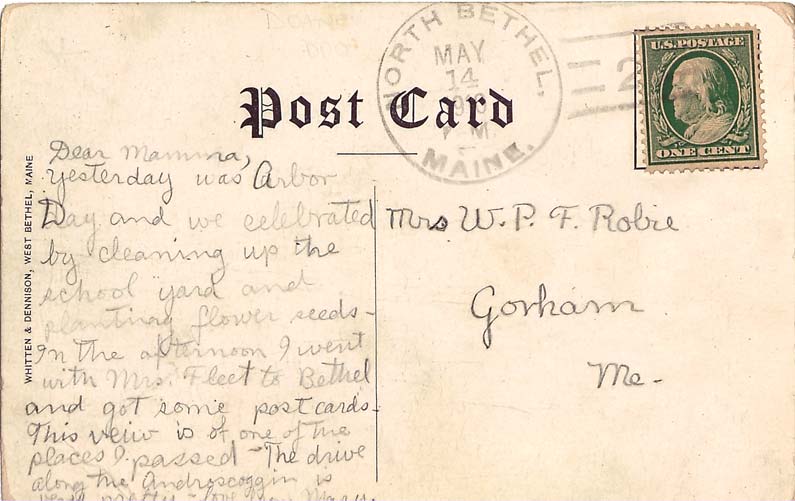 NORTH BETHEL,
MAY
14
MAINE.
U.S. POSTAGE
ONE CENT
Post Card
WHITTEN & DENNISON, WEST BETHEL, MAINE
Dear Mamma,
Yesterday was Arbor
Day and we celebrated
by cleaning up the
school yard and
planting flower seeds-
In the afternoon I went
with Mrs. Fleet to Bethel
and got some postcards-
This veiw is of one of the
places I passed - The drive
along the Androscoggin is
very pretty - love from Mary.
Mrs. W. P. F. Robie
Gorham
Me-